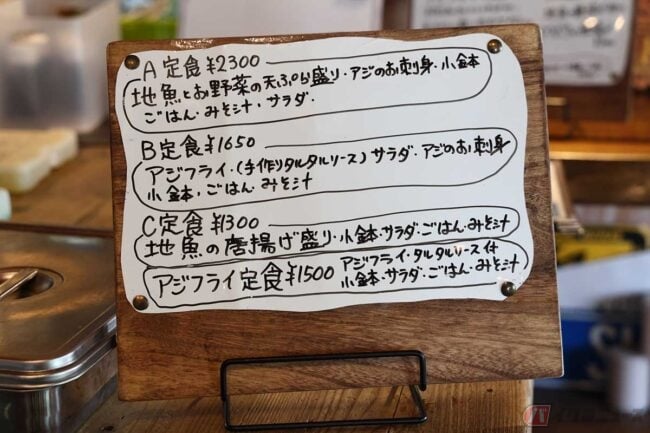 A定食 ¥2300
地魚とお野菜の天ぷら盛り・アジのお刺身・小鉢
ごはん・みそ汁・サラダ・
B定食 ¥1650
アジフライ・(手作りタルタルソース)サラダ・アジのお刺身
小鉢・ごはん・みそ汁
C定食 ¥1300
地魚の唐揚げ盛り・小鉢・サラダ・ごはん・みそ汁
アジフライ定食 ¥1500 アジフライ・タルタルソース付
小鉢・サラダ・ごはん・みそ汁